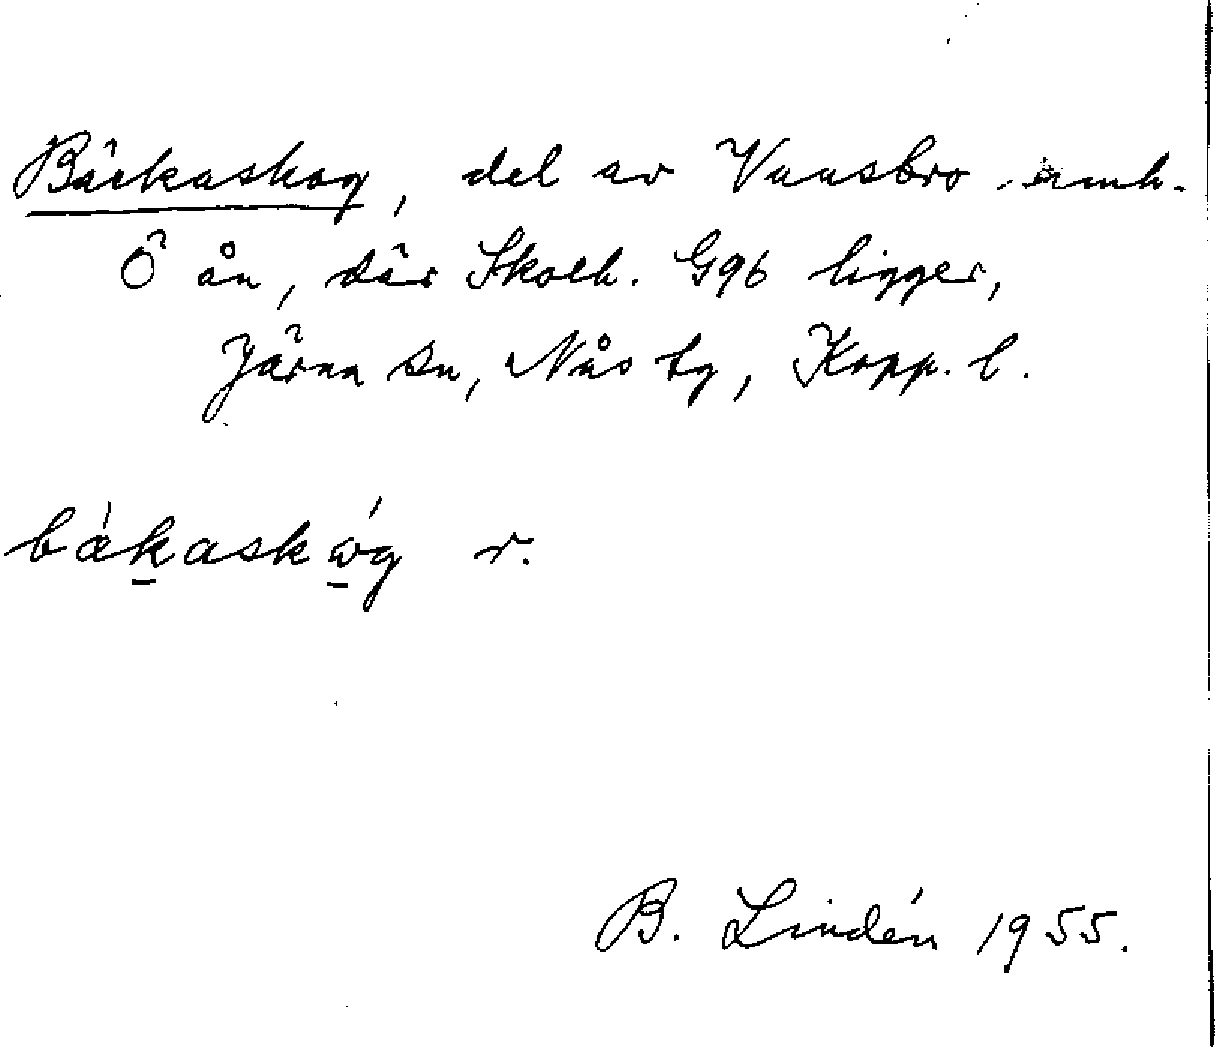 Bäckaskog, del av Vansbro samh.
Ö ån, där Skolh. G96 ligger,
Järna sn, Nås tg, Kopp. l.
bákaskóg r.
B. Lindén 1955.